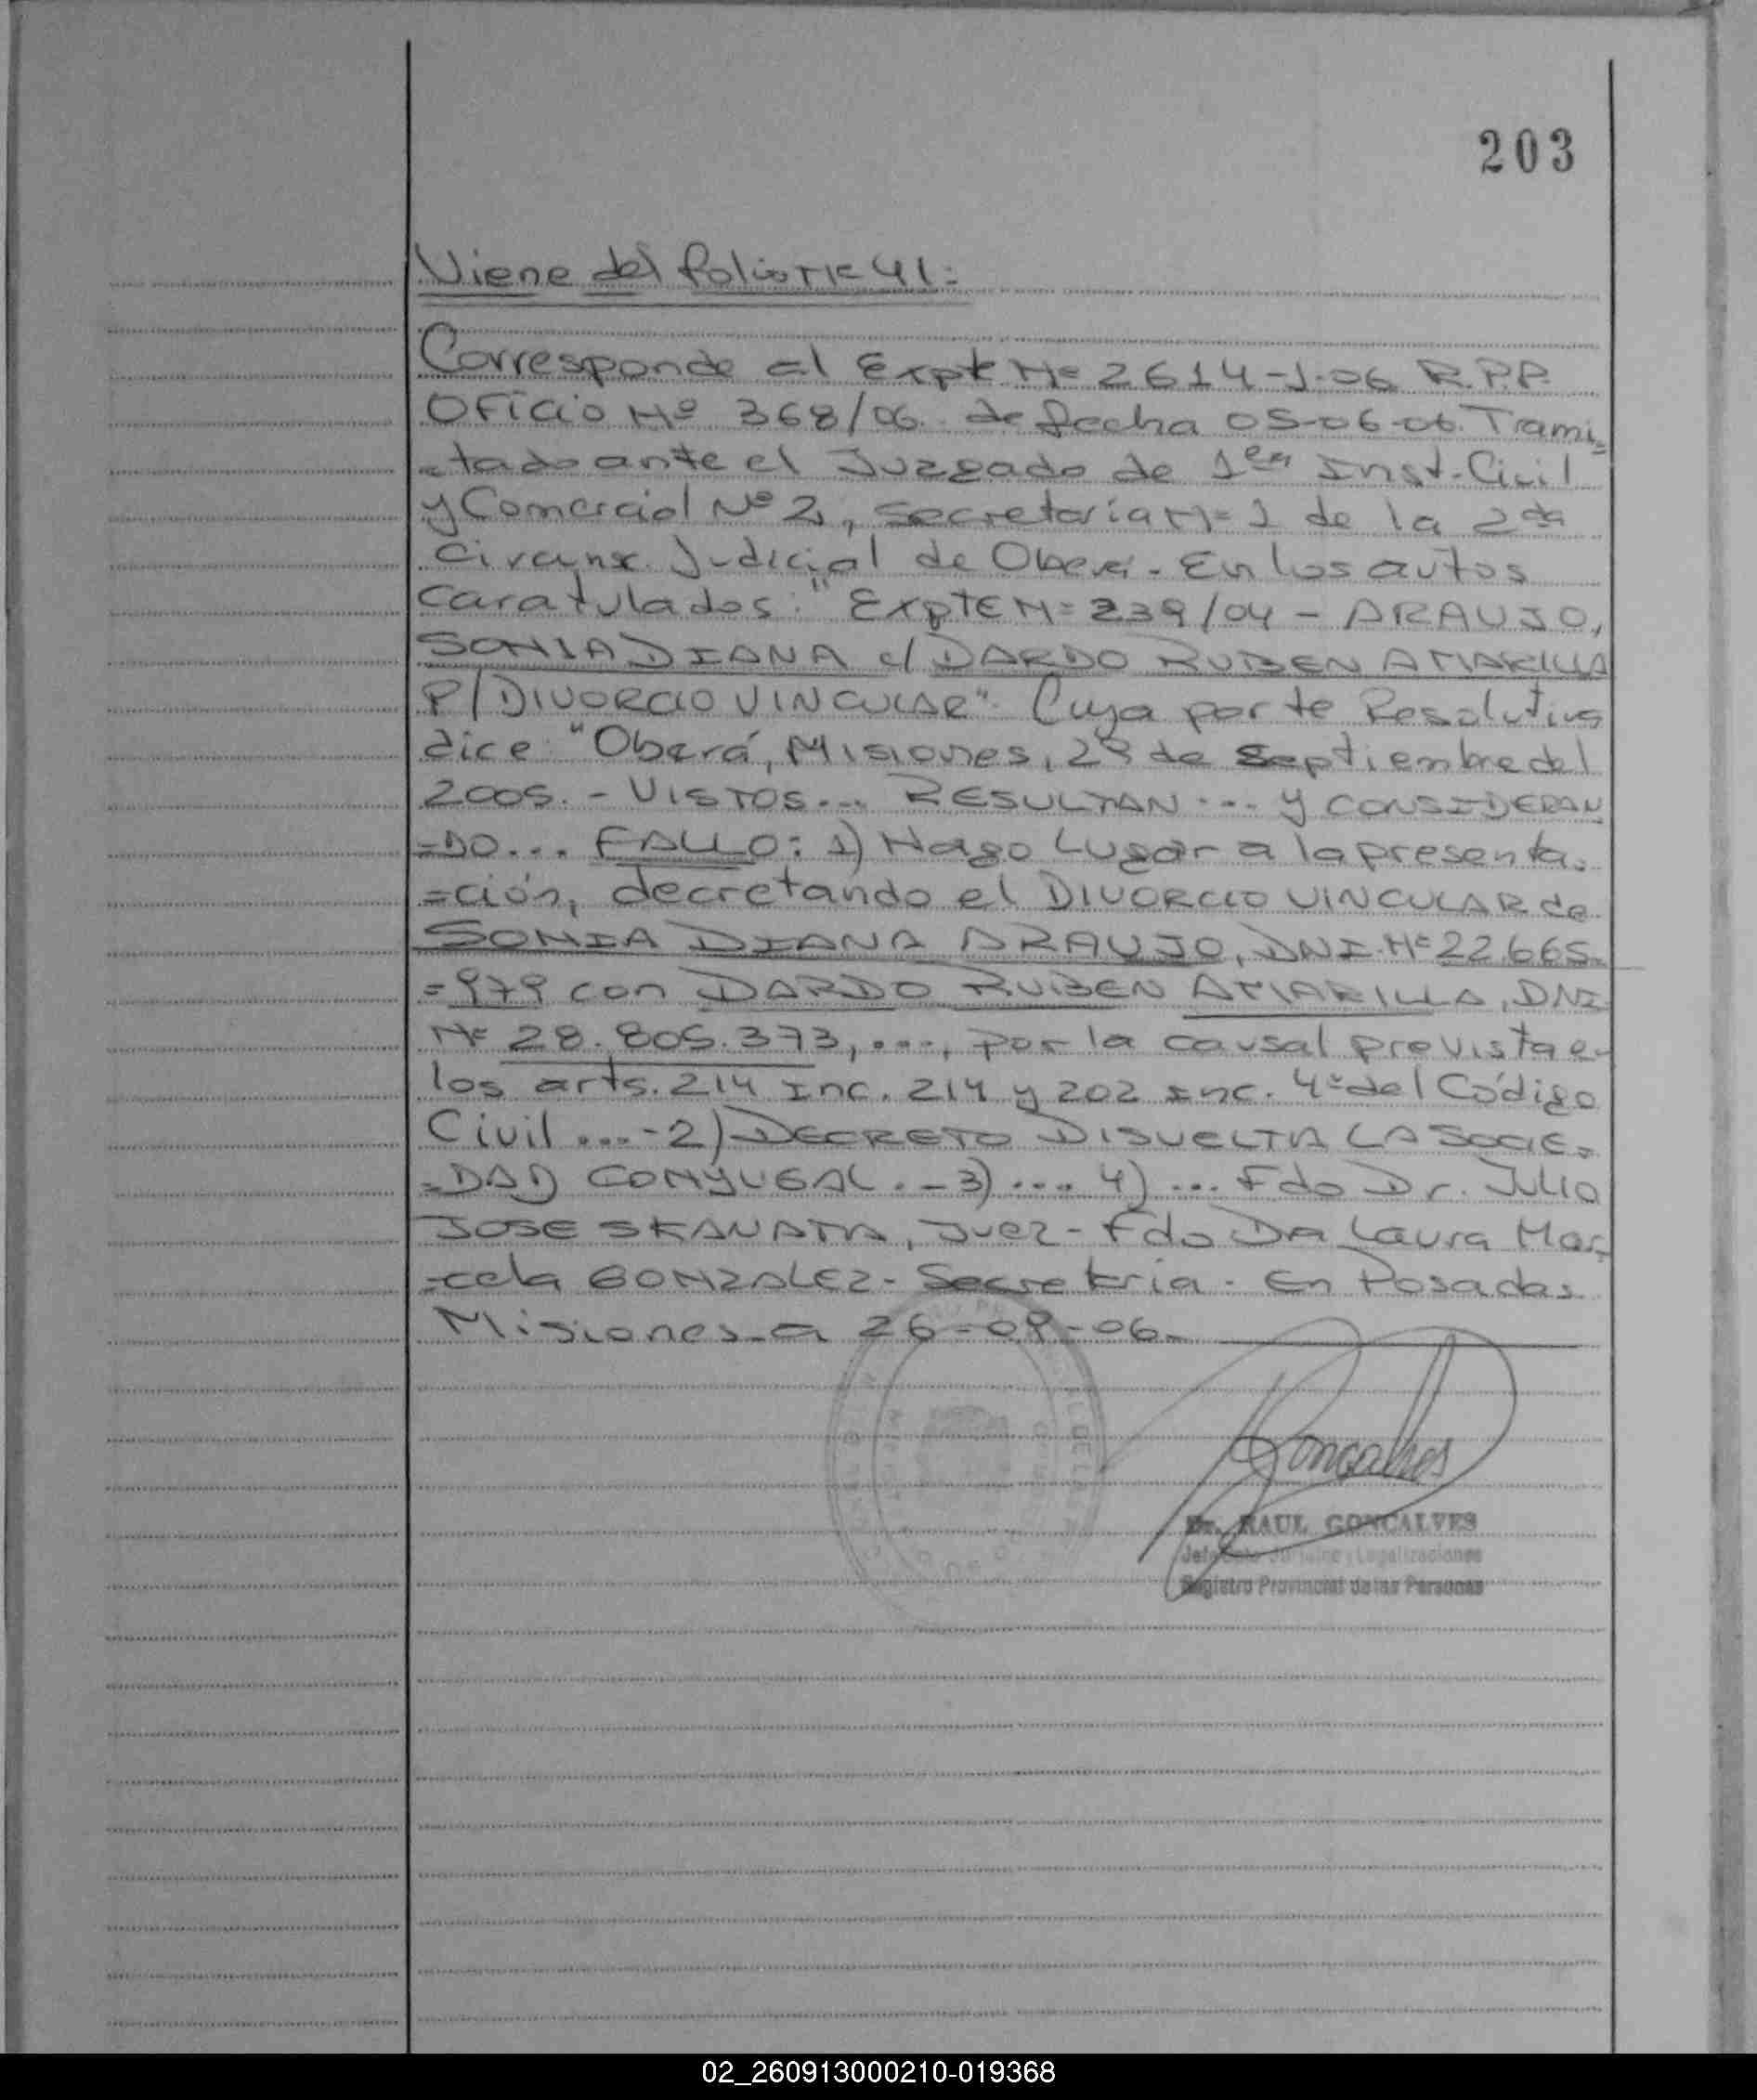 203
Viene del folio Nº 41:
Corresponde al Expte Nº 2614-J-06 R.P.P.
Oficio Nº 368/06 de fecha 05-06-06. Trami=
=tado ante el Juzgado de 1era Inst. Civil
y Comercial Nº 2, Secretaría Nº 1 de la 2da
Circunsc. Judicial de Oberá. En los autos
Caratulados: "Expte Nº 239/04 - ARAUJO,
SONIA DIANA c/ DARDO RUBEN AMARILLA
P/ DIVORCIO VINCULAR". Cuya parte Resolutiva
dice: "Oberá, Misiones, de Septiembre del
2005. - VISTOS... RESULTAN... y CONSIDERAN
=DO... FALLO: 1) Hago Lugar a la presenta=
=ción, decretando el DIVORCIO VINCULAR de
SONIA DIANA ARAUJO, DNI. Nº 22.665.
=979 con DARDO RUBEN AMARILLA, DNI
Nº 28.805.373, ..., por la causal prevista en
los arts. 214 Inc. 214 y 202 Inc. 4º del Código
Civil ...-2) DECRETO DISUELTA LA SOCIE=
=DAD CONYUGAL.-3).... 4)... Fdo Dr. Julio
JOSE SKANATA, Juez - Fdo Dra Laura Mar=
=cela GONZALEZ - Secretaria - En Posadas
Misiones a 26-09-06.
Goncalves
Dr. RAUL GONCALVES
Jefe Dpto Jurídico y Legalizaciones
Registro Provincial de las Personas
02_260913000210-019368